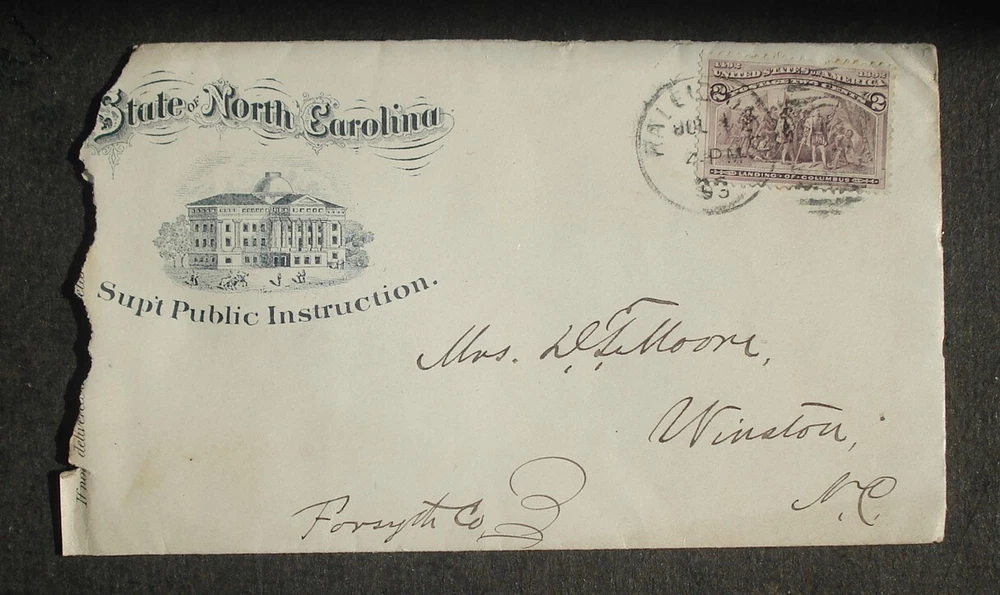 State of North Carolina
Sup't Public Instruction.
If not delivered
RALEI
JUL 1
4 PM
93
1492 1892
UNITED STATES OF AMERICA
POSTAGE TWO CENTS
2 2
LANDING OF COLUMBUS
Mrs. D. F. Moore,
Winston,
N.C.
Forsyth Co